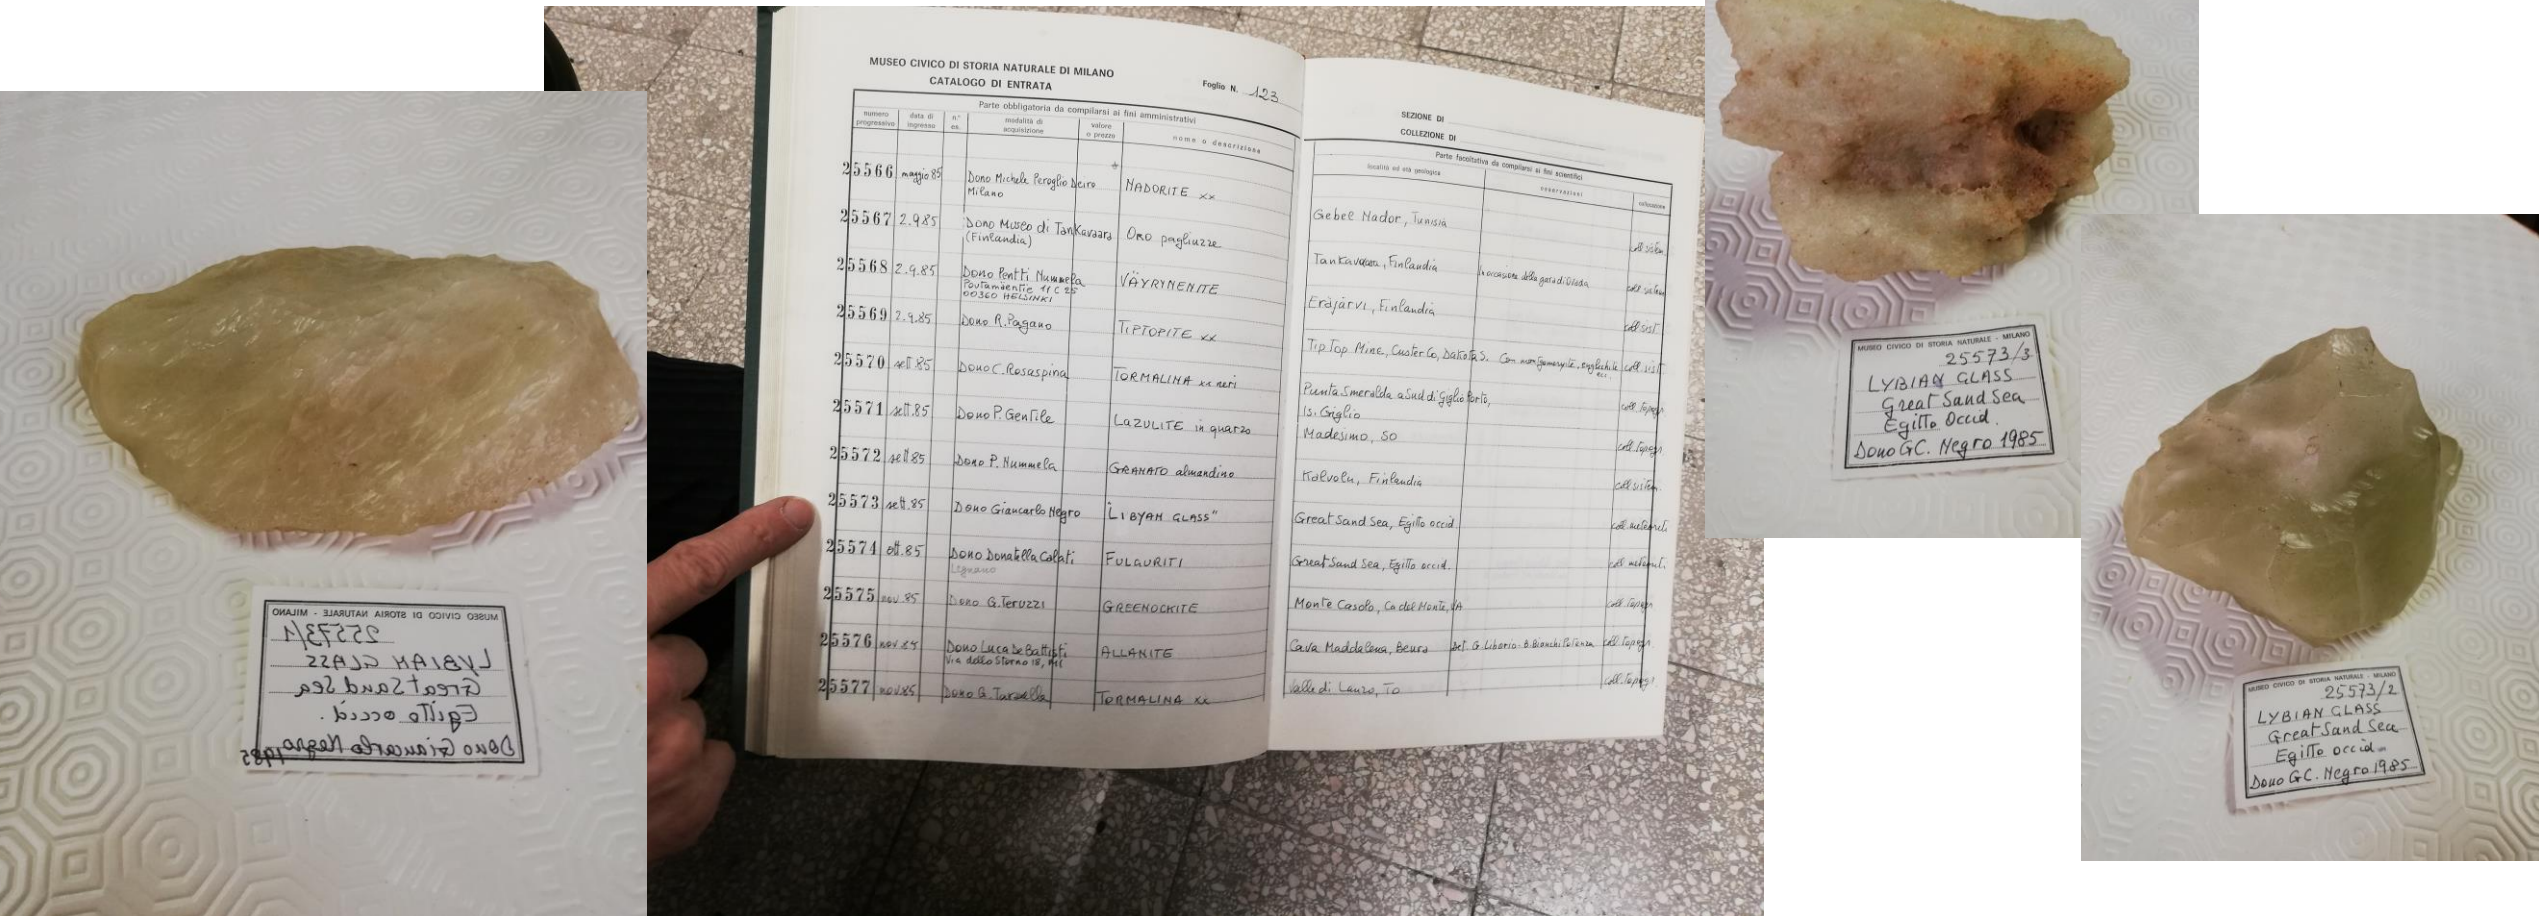 MUSEO CIVICO DI STORIA NATURALE - MILANO
25573/1
LYBIAN GLASS
Great Sand Sea
Egitto occid.
Dono Giancarlo Negro 1985
MUSEO CIVICO DI STORIA NATURALE DI MILANO
CATALOGO DI ENTRATA
Foglio N. 123
Parte obbligatoria da compilarsi ai fini amministrativi
numero progressivo data di ingresso n° es. modalità di acquisizione valore o prezzo nome o descrizione
25566 maggio 85 Dono Michele Peroglio Deiro NADORITE xx
Milano
25567 2.9.85 Dono Museo di Tankavaara Oro pagliuzze
(Finlandia)
25568 2.9.85 Dono Pentti Nummela VÄYRYNENITE
Poutamäentie 11 C 25
00360 HELSINKI
25569 2.9.85 Dono R. Pagano TIPTOPITE xx
25570 sett.85 Dono C. Rosaspina TORMALINA xx neri
25571 sett.85 Dono P. Gentile LAZULITE in quarzo
25572 sett.85 Dono P. Nummela GRANATO almandino
25573 sett.85 Dono Giancarlo Negro "LIBYAN GLASS"
25574 ott.85 Dono Donatella Colati FULGURITI
Legnano
25575 nov.85 Dono G. Teruzzi GREENOCKITE
25576 nov 85 Dono Luca De Battisti ALLANITE
Via dello Storno 18, MI
25577 nov 85 Dono G. TORMALINA xx
SEZIONE DI
COLLEZIONE DI
Parte facoltativa da compilarsi ai fini scientifici
località ed età geologica osservazioni collocazione
Gebel Nador, Tunisia coll. sistem.
Tankavaara, Finlandia In occasione della gara di coll. sistem
Eräjärvi, Finlandia coll. sist.
Tip Top Mine, Custer Co, Dakota S. Con montgomeryite, englishite coll. sist.
ecc.
Punta Smeralda a Sud di Giglio Porto, coll. topogr.
Is. Giglio
Madesimo, SO coll. topogr.
Kalvola, Finlandia coll. sistem.
Great Sand Sea, Egitto occid. coll. meteoriti
Great Sand Sea, Egitto occid. coll. meteoriti
Monte Casolo, Ca del Monte, coll. topogr.
Cava Maddalena, Beura det. G. Liborio - B. Bianchi Potenza coll. topogr.
Valle di Lanzo, TO coll. topogr.
MUSEO CIVICO DI STORIA NATURALE - MILANO
25573/3
LYBIAN GLASS
Great Sand Sea
Egitto Occid.
Dono GC. Negro 1985
MUSEO CIVICO DI STORIA NATURALE - MILANO
25573/2
LYBIAN GLASS
Great Sand Sea
Egitto occid.
Dono GC. Negro 1985